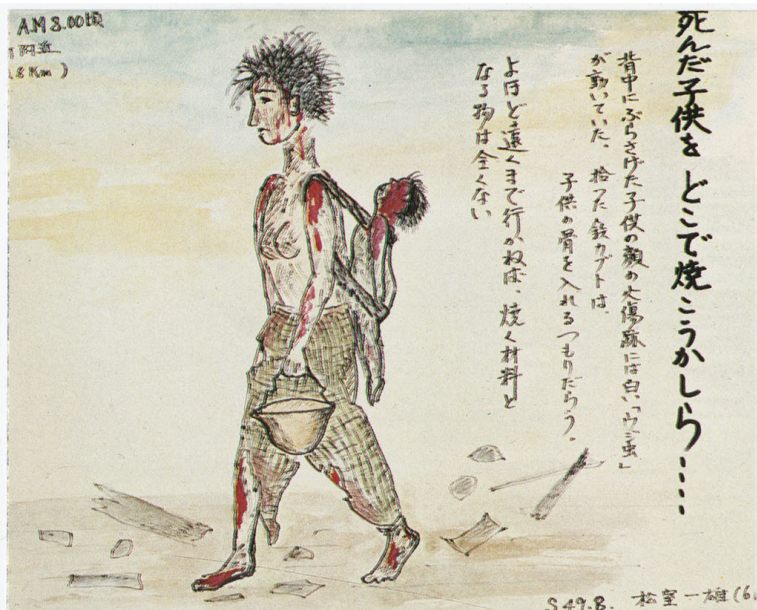 死んだ子供を どこで焼こうかしら‥‥
背中にぶらさげた子供の顔の火傷跡には白い「ウジ虫」
が動いていた。 拾った鉄カブトは、
子供の骨を入れるつもりだろう。
よほど遠くまで行かねば、焼く材料と
なる物は全くない
A.M 8.00頃
8 Km )
S49.8. 松室一雄(6